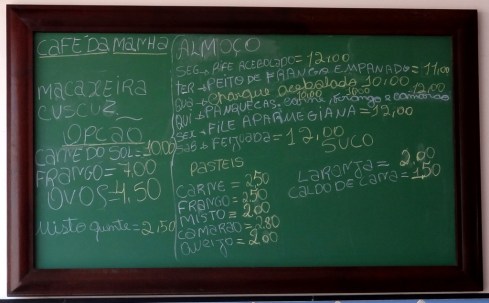 CAFÉ DA MANHÃ
MACAXEIRA
CUSCUZ
OPCAO
CARNE DO SOL=10,00
FRANGO=7,00
OVOS=4,50
Misto quente=2,50
ALMOÇO
SEG→BIFE ACEBOLADO=12,00
TER→PEITO DE FRANGO EMPANADO=11,00
QUA→Charque acebolada 10,00
QUI→PANQUECAS. carne, frango e camarão
10,00 10,00 12,00
SEX→FILE APARMEGIANA=12,00
SAB→FEIJOADA=12,00
SUCO
LARANJA= 2,00
CALDO DE CANA=1,50
PASTEIS
CARNE=2,50
FRANGO=2,50
MISTO=2,00
CAMARAO=2,80
QUEIJO=2,00